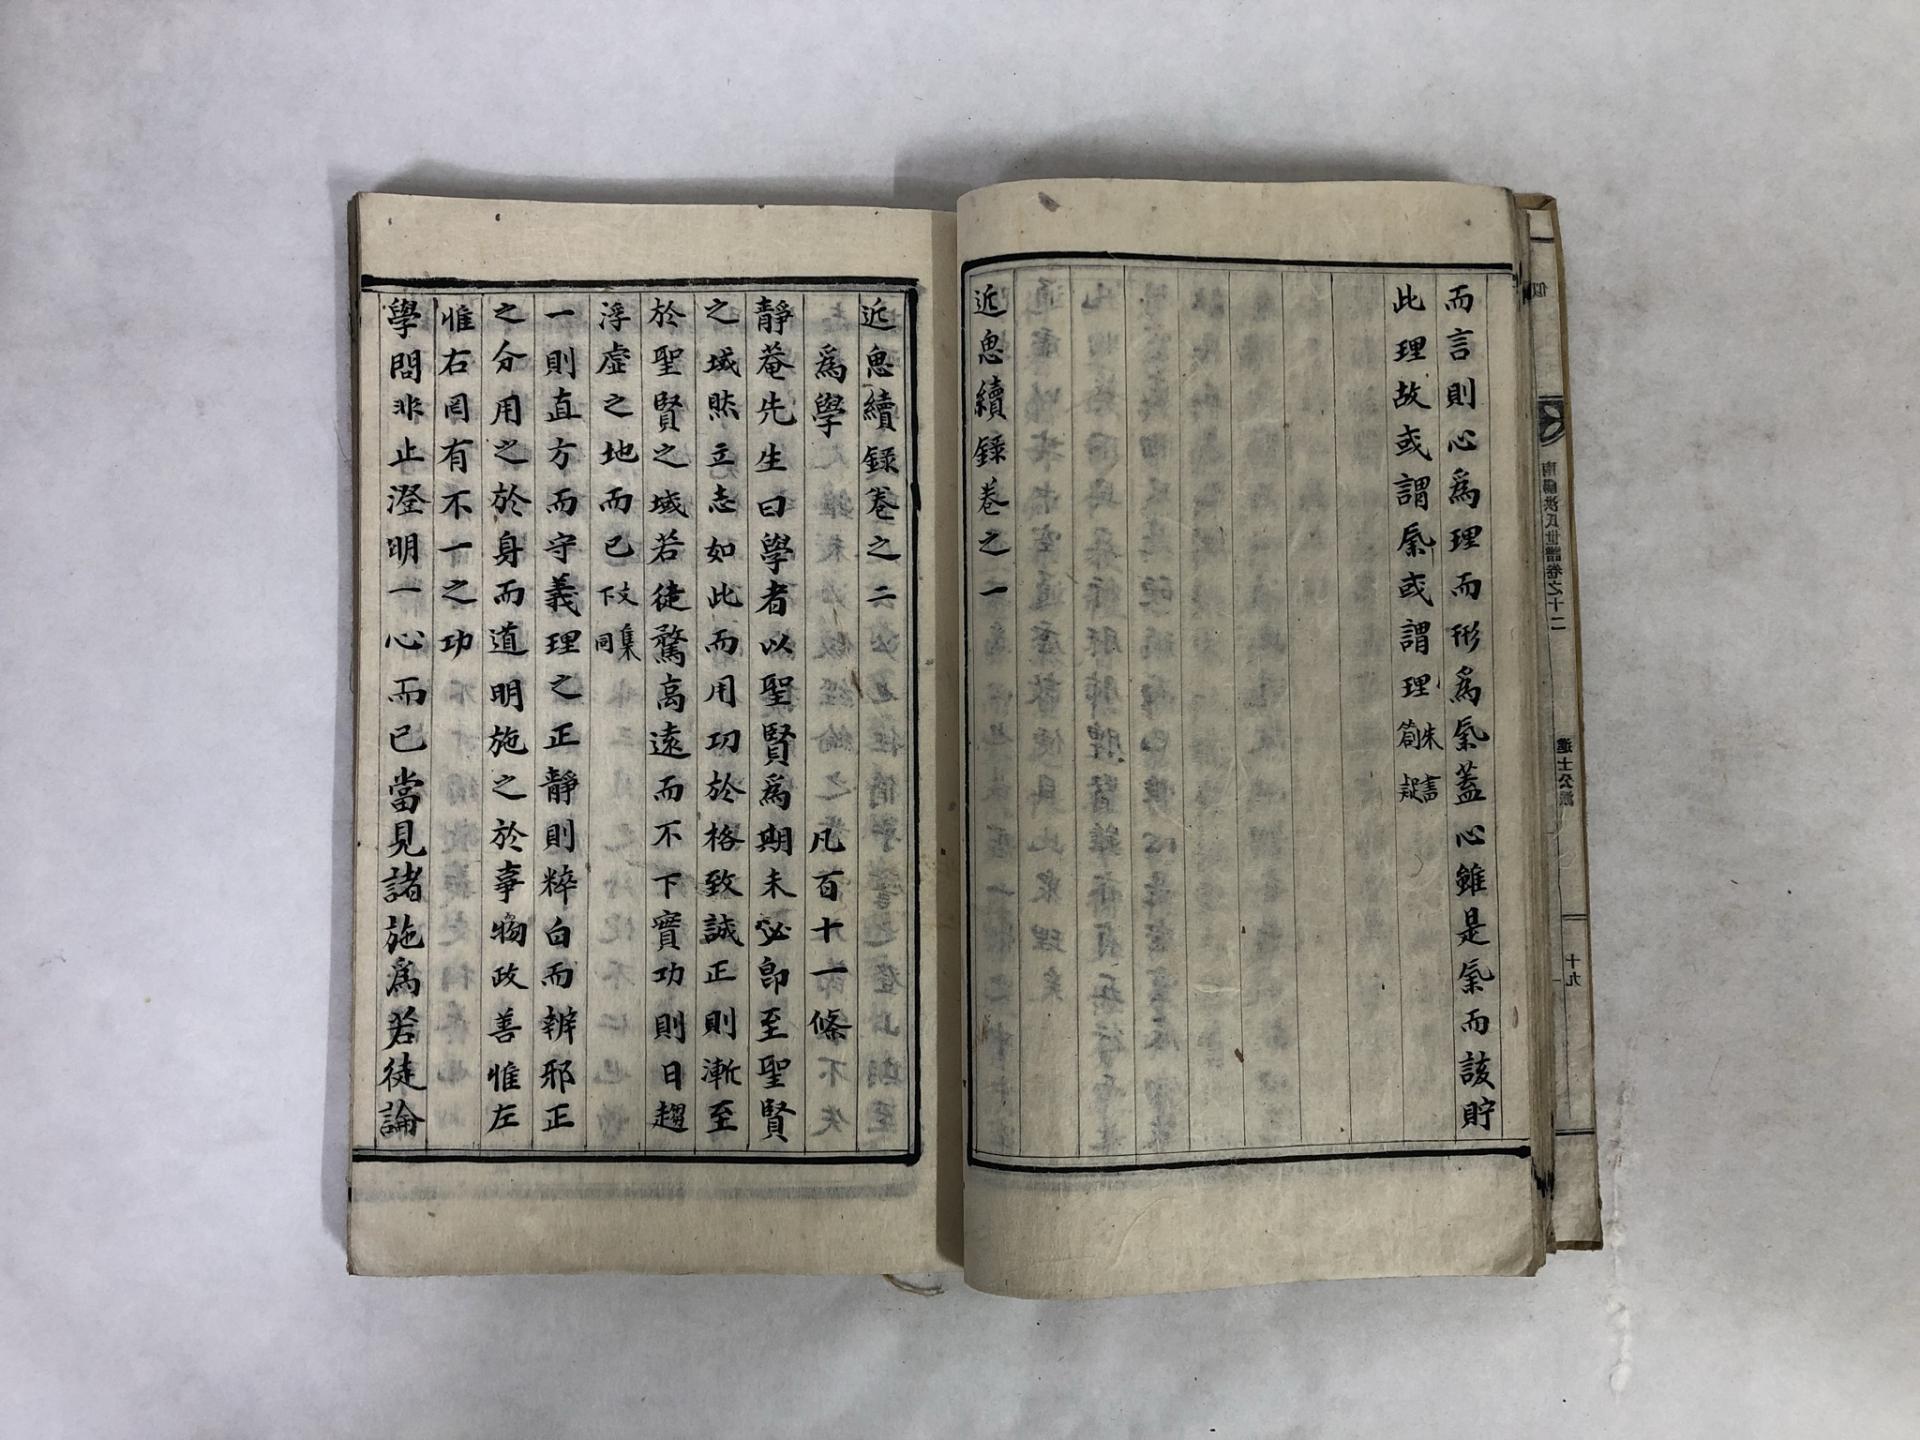 而言則心爲理而形爲氣蓋心雖是氣而該貯
此理故或謂氣或謂理朱書箚疑
近思續錄卷之一
近思續錄卷之二
爲學 凡百十一條
靜菴先生曰學者以聖賢爲期未必卽至聖賢
之域然立志如此而用功於格致誠正則漸至
於聖賢之域若徒騖高遠而不下實功則日趨
浮虛之地而已文集下同
一則直方而守義理之正靜則粹白而辨邪正
之分用之於身而道明施之於事物政善惟左
惟右罔有不一之功
學問非止澄明一心而已當見諸施爲若徒論
南陽洪氏世譜卷之十二
進士公派
十九